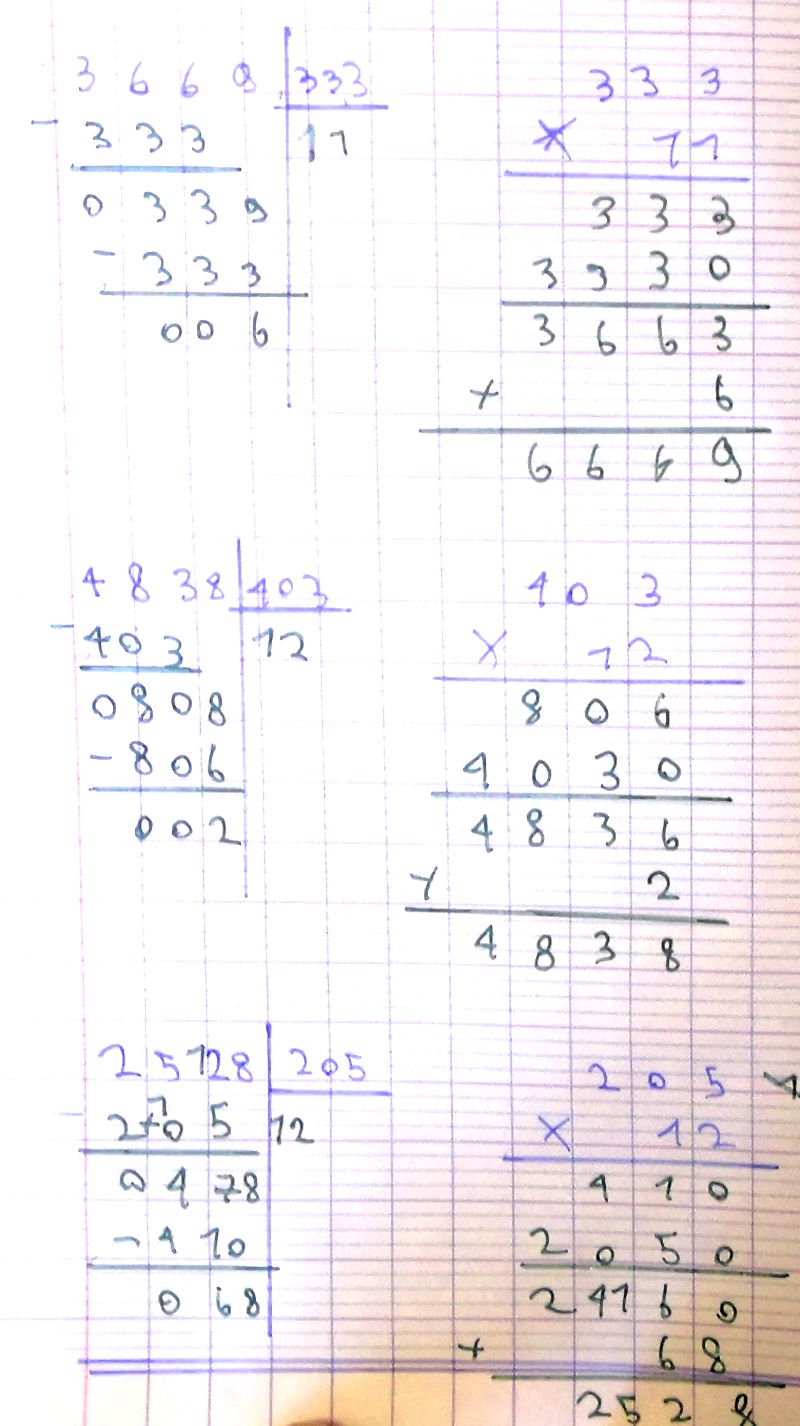 3 6 6 9 333
- 3 3 3 11
0 3 3 9
- 3 3 3
0 0 6
3 3 3
X 11
3 3 3
3 3 3 0
3 6 6 3
+ 6
6 6 6 9
4 8 3 8 403
- 4 0 3 12
0 8 0 8
- 8 0 6
0 0 2
4 0 3
X 12
8 0 6
4 0 3 0
4 8 3 6
+ 2
4 8 3 8
2 5 12 8 205
- 2 +1 0 5 12
0 4 7 8
- 4 1 0
0 6 8
2 0 5
X 12
4 1 0
2 0 5 0
2 4 6 0
+ 6 8
2 5 2 8